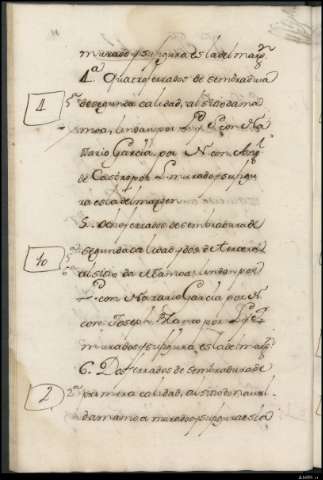 murado y su figura es la del marg.n
4.a Quatro ferrados de sembradura
4 de segunda calidad, al sitio da ma
moa, lindan por L.te con Na
zario Garcia, por N. con Ang.l
de Castro por murado su figu
ra es la del margen
5. Ocho ferrados de sembradura de
10 segunda calidad y dos de tercera
al sitio da Mamoa, lindan por
con Nazario Garcia por N.
con Joseph Blanco por
murados y su figura es la del marg.n
6. Dos ferrados de sembradura de
2 2.a primera calidad, al sitio
da mamoa murado y su figura es la